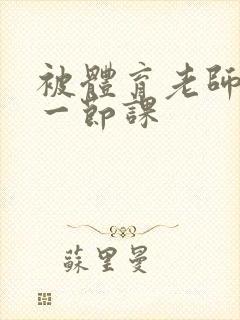 被體育老師
一節課
蘇里曼